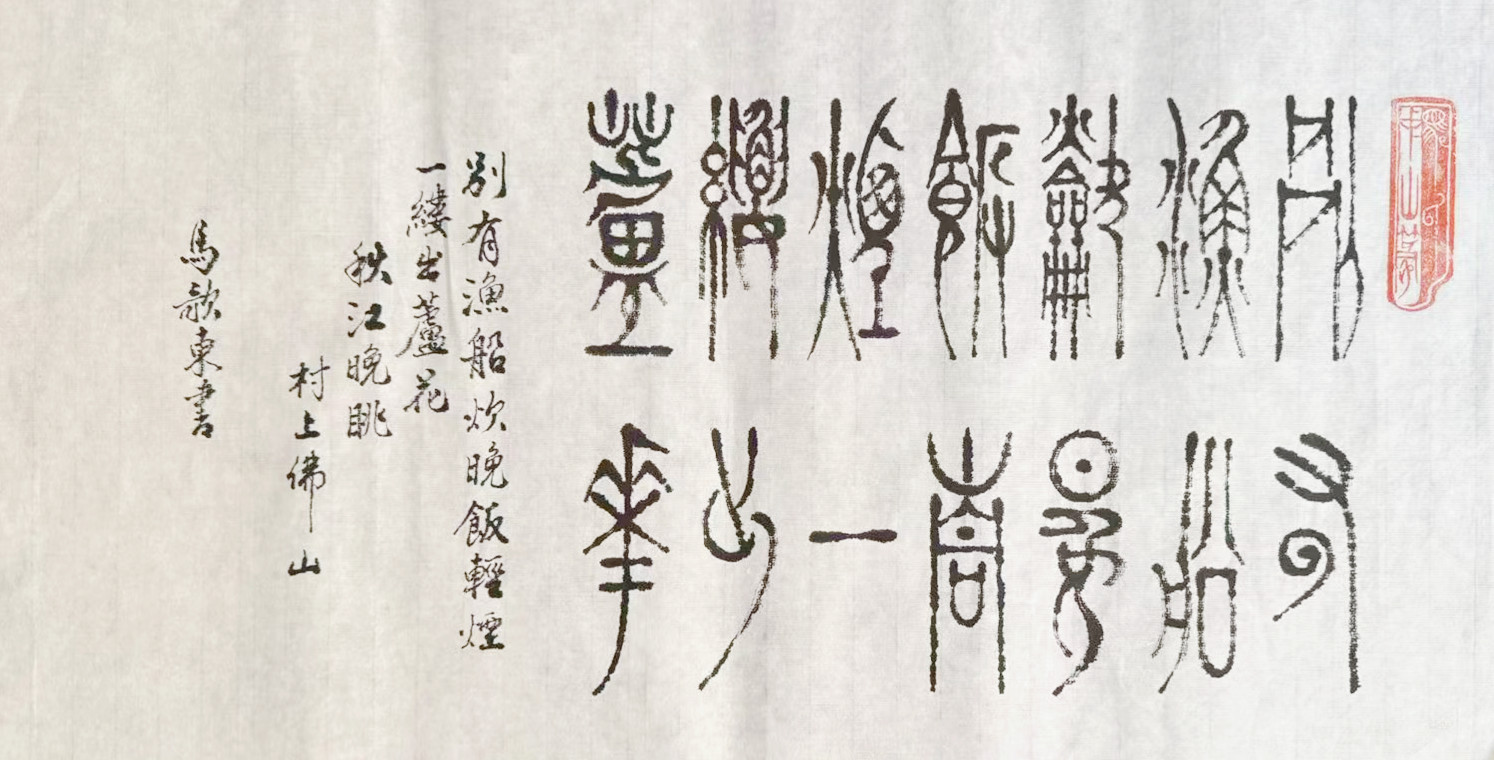 別有
漁船
炊晚
飯
煙一
縷出
蘆華
別有漁船炊晚飯輕煙
一縷出蘆花
秋江晚眺
村上佛山
馬歌東書